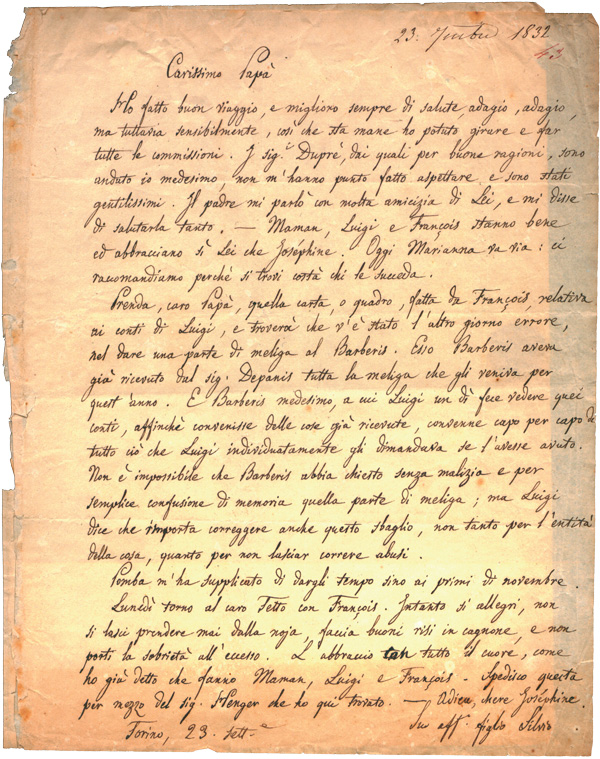 23. 7mbre 1832
43
Carissimo Papà
Ho fatto buon viaggio, e migliono sempre di salute, adagio, adagio,
ma tuttavia sensibilmente, così che sta mane ho potuto girare e far
tutte le commissioni. I sig.i Duprè, dai quali per buone ragioni, sono
andato io medesimo, non m'hanno punto fatto aspettare, e sono stati
gentilissimi. Il padre mi parlò con molta amicizia di Lei, e mi disse
di salutarla tanto. — Maman, Luigi e François stanno bene
ed abbracciano sì Lei che Joséphine. Oggi Marianna va via: ci
racomandiamo perchè si trovi costà chi le succeda.
Prenda, caro Papà, quella carta, o quadro, fatta da François, relativa
ai conti di Luigi, e troverà che v'è stato l'altro giorno errore,
nel dare una parte di meliga al Barberis. Esso Barberis aveva
già ricevuto dal sig. Depanis tutta la meliga che gli veniva per
quest'anno. E Barberis medesimo, a cui Luigi un dì fece vedere quei
conti, affinchè convenisse delle cose già ricevute, convenne capo per capo di
tutto ciò che Luigi individuatamente gli dimandava se l'avesse avuto.
Non è impossibile che Barberis abbia chiesto senza malizia e per
semplice confusione di memoria quella parte di meliga; ma Luigi
dice che importa correggere anche questo sbaglio, non tanto per l'entità
della cosa, quanto per non lasciar correre abusi.
Pomba m'ha supplicato di dargli tempo sino ai primi di novembre.
Lunedì torno al caro Tetto con François. Intanto si allegri, non
si lasci prendere mai dalla noja, faccia buoni risi in cagnone, e non
porti la sobrietà all'eccesso. L'abbraccio con tutto il cuore, come
ho già detto che fanno Maman, Luigi e François. Spedisco questa
per mezzo del sig. Henger che ho qui trovato. — Adieu, chere Joséphine.
Torino, 23. sett.e
Suo aff. figlio Silvio